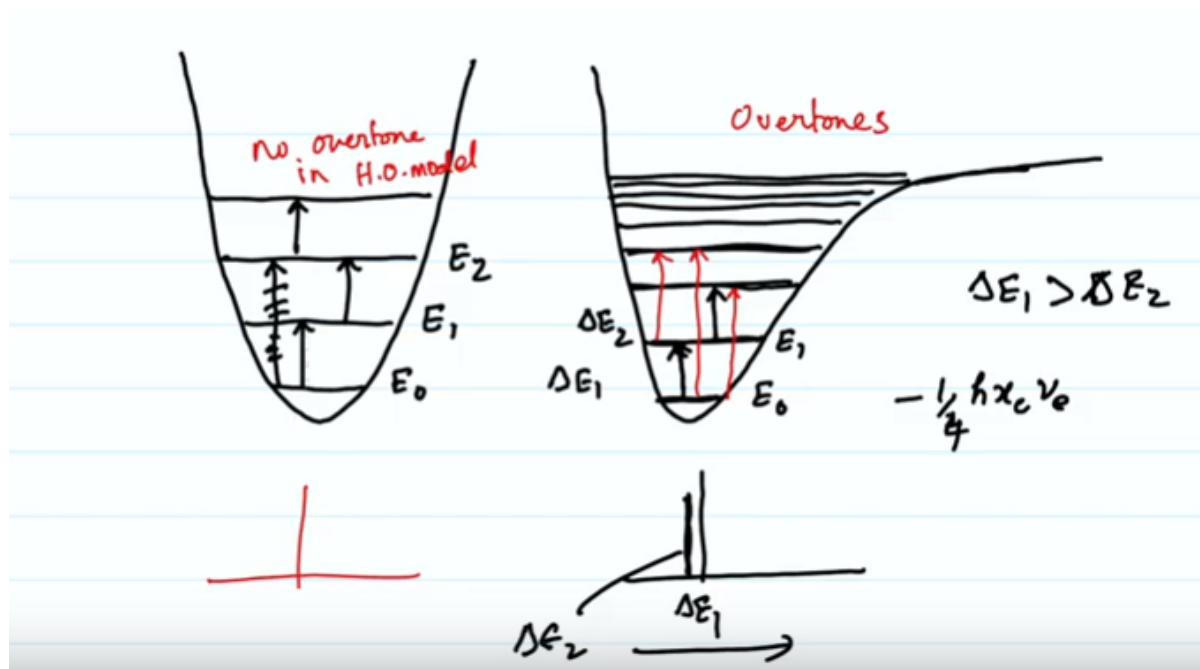 no overtone
in H.O. model
E2
E1
E0
Overtones
ΔE2
ΔE1
E1
E0
ΔE1 > ΔE2
- 1/4 h xe νe
ΔE1
ΔE2